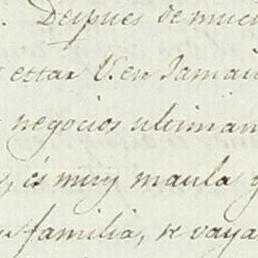 . Despues de muc
estar V. en Jamai
negocios ultimam
, es muy maula y
familia, se vaya